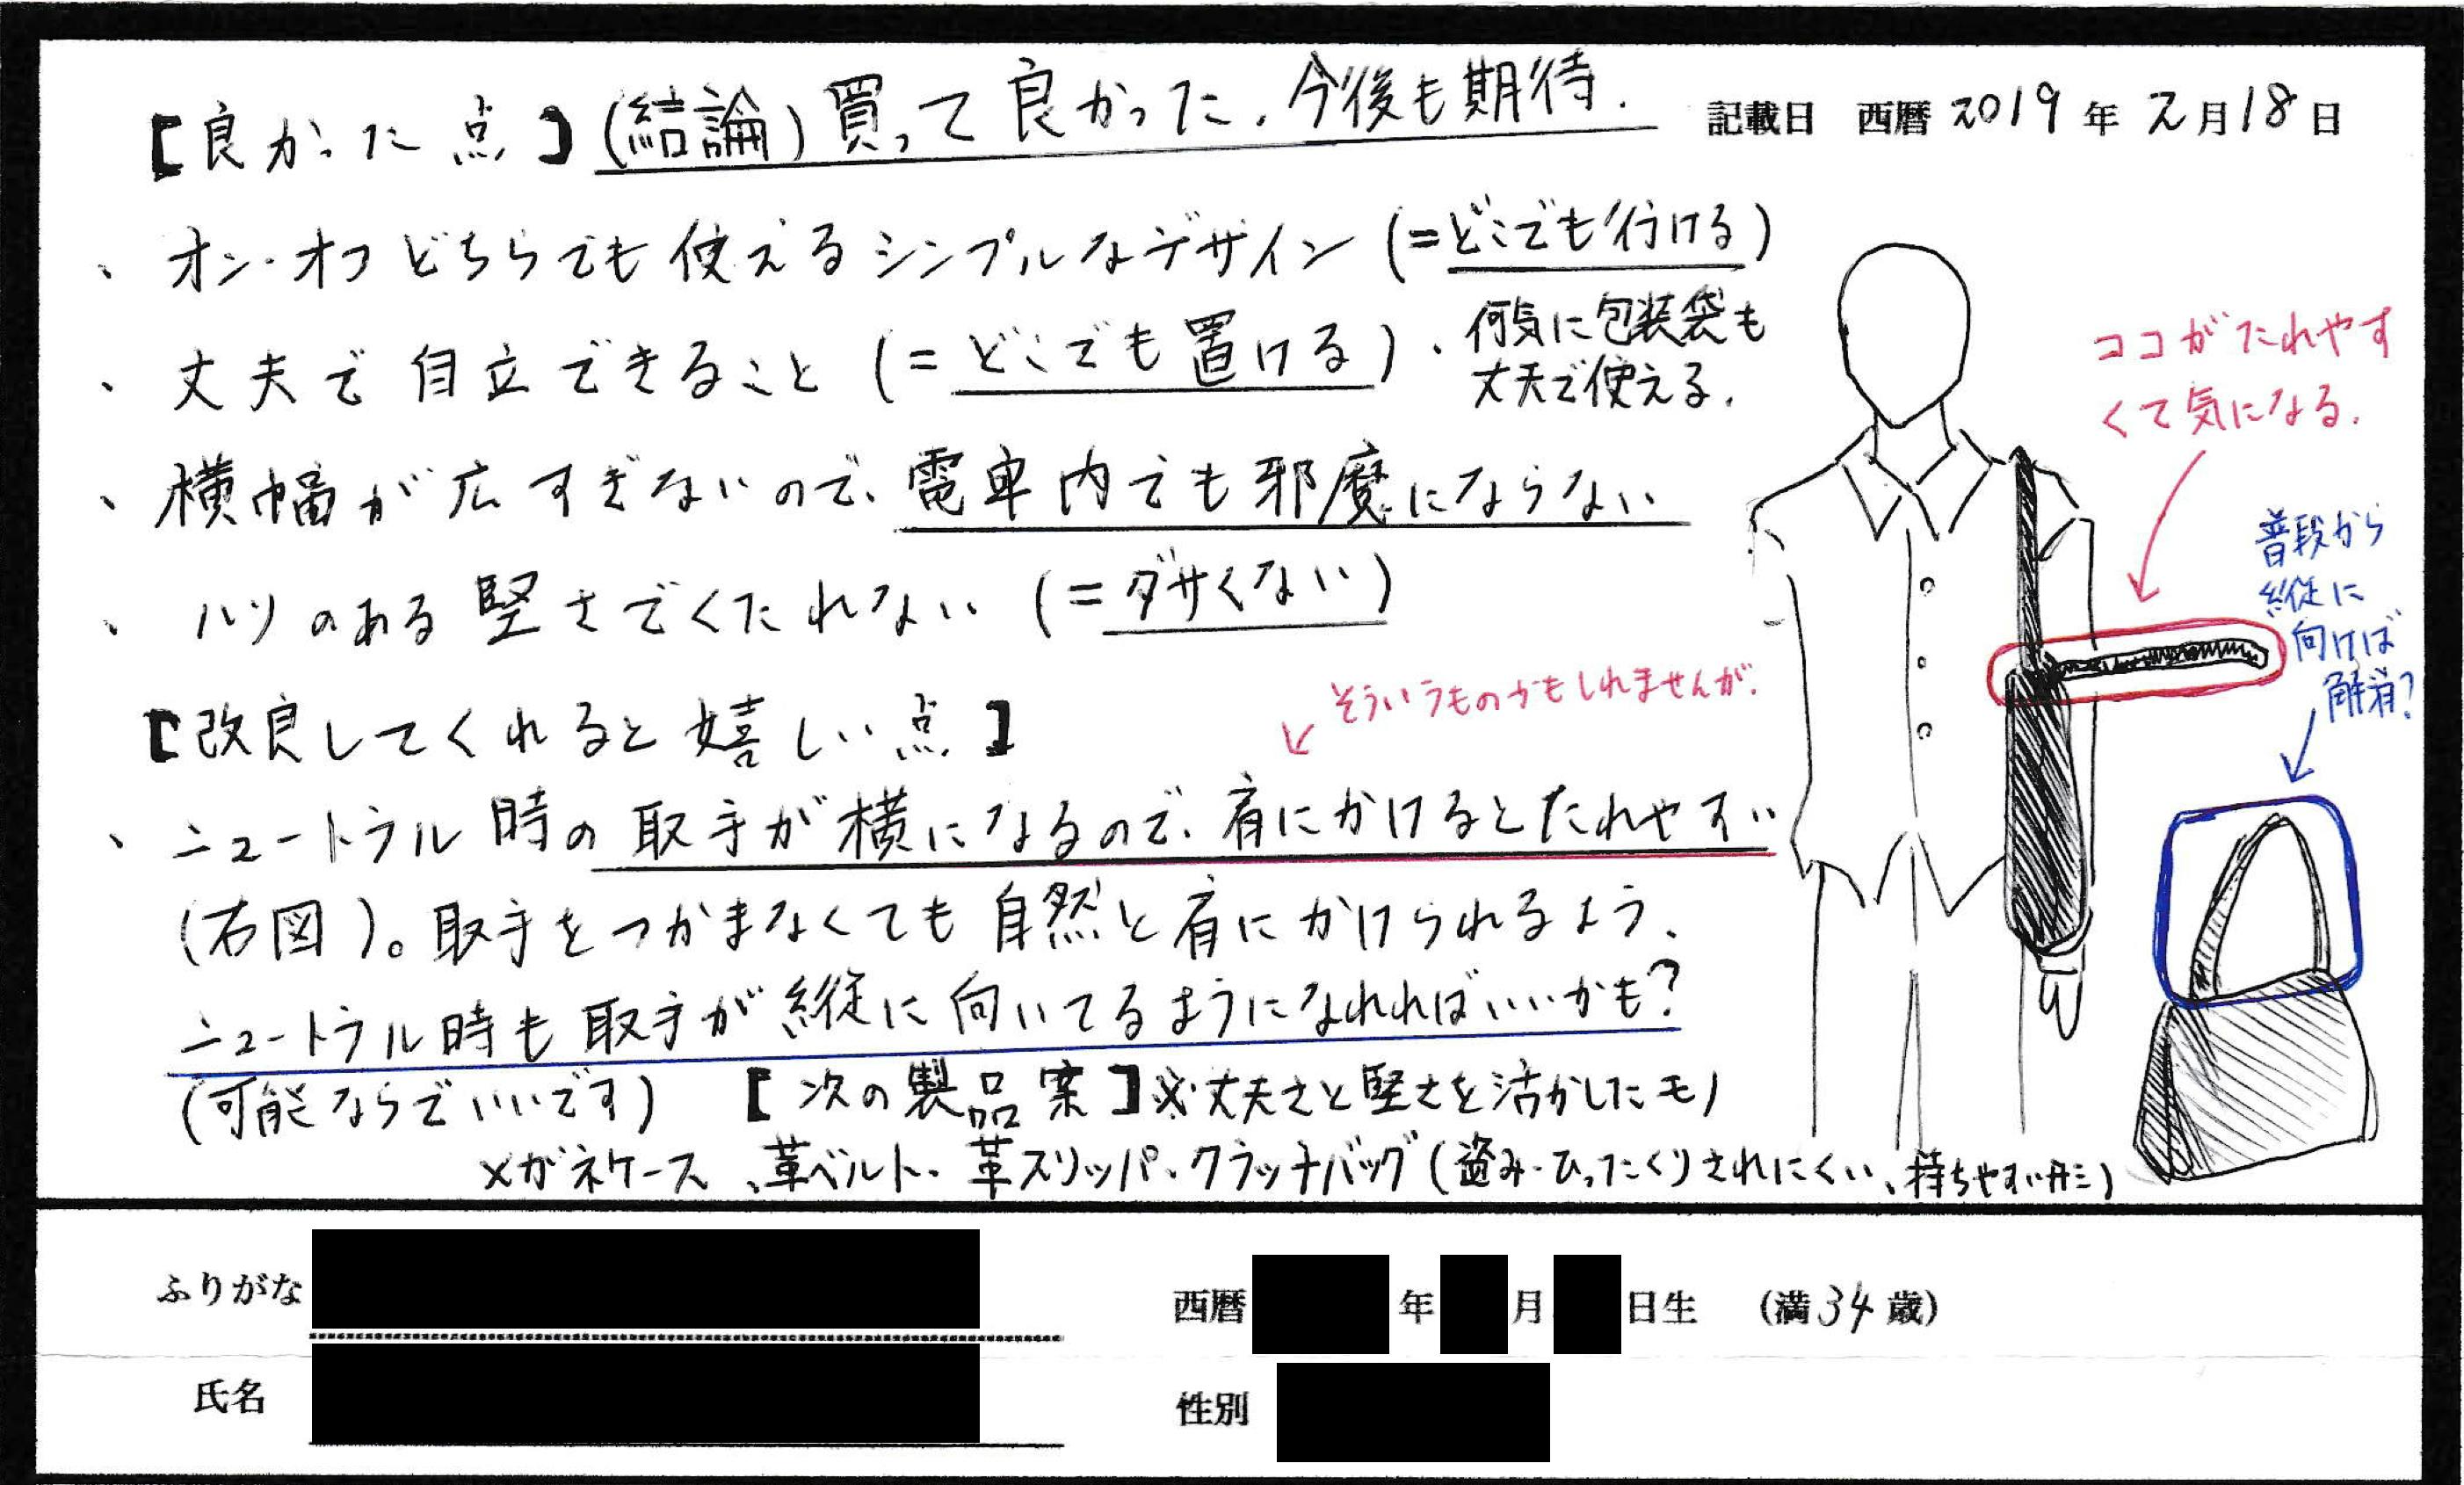 【良かった点】(結論)買って良かった、今後も期待.
記載日 西暦 2019年 2月18日
、オン・オフどちらでも使えるシンプルなデザイン (=どこでも行ける)
、丈夫で自立できること (=どこでも置ける)、何気に包装袋も
丈夫で使える.
、横幅が広すぎないので、電車内でも邪魔にならない
、ハリのある堅さでくたれない (=ダサくない)
【改良してくれると嬉しい点】
そういうものかもしれませんが.
、ニュートラル時の取手が横になるので、肩にかけるとたれやすい
(右図)。取手をつかまなくても自然と肩にかけられるよう、
ニュートラル時も取手が縦に向いてるようになれればいいかも?
(可能ならでいいです) 【次の製品案】※丈夫さと堅さを活かしたモノ
メガネケース、革ベルト・革スリッパ・クラッチバッグ(盗み・ひったくりされにくい、持ちやすい形)
ココがたれやす
くて気になる.
普段から
縦に
向けば
解消?
ふりがな
西暦 年 月 日生 (満34歳)
氏名
性別